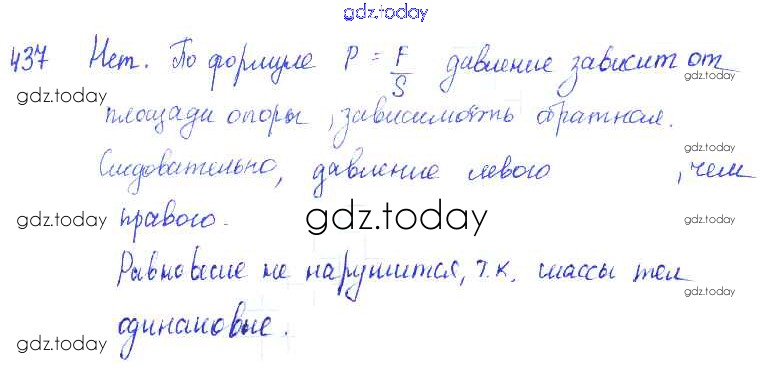 gdz.today
437 Нет. По формуле P = F/S давление зависит от
gdz.today
площади опоры, зависимость обратная.
gdz.today
Следовательно, давление левого , чем
gdz.today правого. gdz.today gdz.today
Равновесие не нарушится, т.к. массы тел
gdz.today
одинаковые.
gdz.today gdz.today